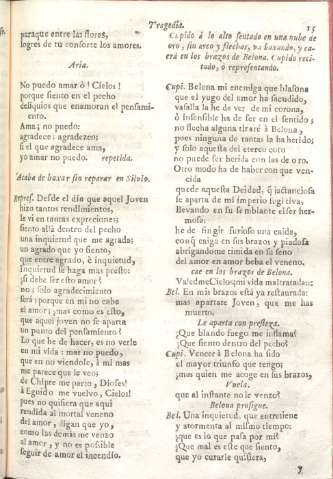 Tragedia.
15
paraque entre las flores,
logres de tu consorte los amores.
Aria.
No puedo amar ò! Cielos!
porque siento en el pecho
deliquios que enamoran el pensami-
ento.
Ama; no puedo:
agradece: agradezco;
si el que agradece ama,
yo amar no puedo. repetida.
Acaba de baxar sin reparar en Silvio.
Repres. Desde el dia que aquel Joven
hizo tantos rendimientos,
le vi en tantas expreciones;
siento allà dentro del pecho
una inquietud que me agrada;
un agrado que yo siento,
que entre agrado, è inquietud,
inquietud se haga mas presto:
si debe ser esto amor?
no; solo agradecimiento
serà; porque en mi no cabe
el amor; mas como es esto,
que aquel joven no se aparta
un punto del pensamiento?
Lo que he de hacer, es no verle
en mi vida: mas no puedo,
que en no viendole, à mi mas
me parece que le veo;
de Chipre me parto, Dioses!
à Eguido me vuelvo, Cielos!
pues no quisiera que aqui
rendida al mortal veneno
del amor, digan que yo,
como las demàs me venzo
al amor, y no es possible
seguir de amor el incendio.
Cupido à lo alto sentado en una nube de
oro, sin arco y flechas, và baxando, y ca-
erà en los brazos de Belona. Cupido reci-
tado, ò representando.
Cupi. Belona mi enemiga que blasona
que el yugo del amor ha sacudido,
vasalla la he de ver de mi corona,
ò insensible ha de ser en el sentido;
no flecha alguna tiraré à Belona,
pues ninguna de tantas la ha herido;
y solo aquesta del eterco coro
no puede ser herida con las de oro.
Otro modo ha de haber con que ven-
cida
quede aquesta Deidad, q̃ jactanciosa
se aparta de mi imperio fugitiva,
llevando en su semblante el ser her-
mosa:
he de fingir furioso una caida,
con q̃ caiga en sus brazos, y piadosa
abrigandome timida en su seno
del amor en amor beba el veneno.
cae en los brazos de Belona.
Valedme Cielos, mi vida maltratada:
Bel. En mis brazos està ya restaurada:
mas apartate Joven, que me has
muerto.
Le aparta con presteza.
¡Que blando fuego me inflama!
¡Que siento dentro del pecho!
Cupi. Vencer à Belona ha sido
el mayor triunfo que tengo;
¿mas quien me acoge en sus brazos,
Vuela.
que al instante no le venzo?
Belona prosigue.
Bel. Una inquietud, que entretiene
y atormenta al mismo tiempo;
¿que es lo que pasa por mi?
¿Que mal es este que siento,
que yo curarle quisiera,